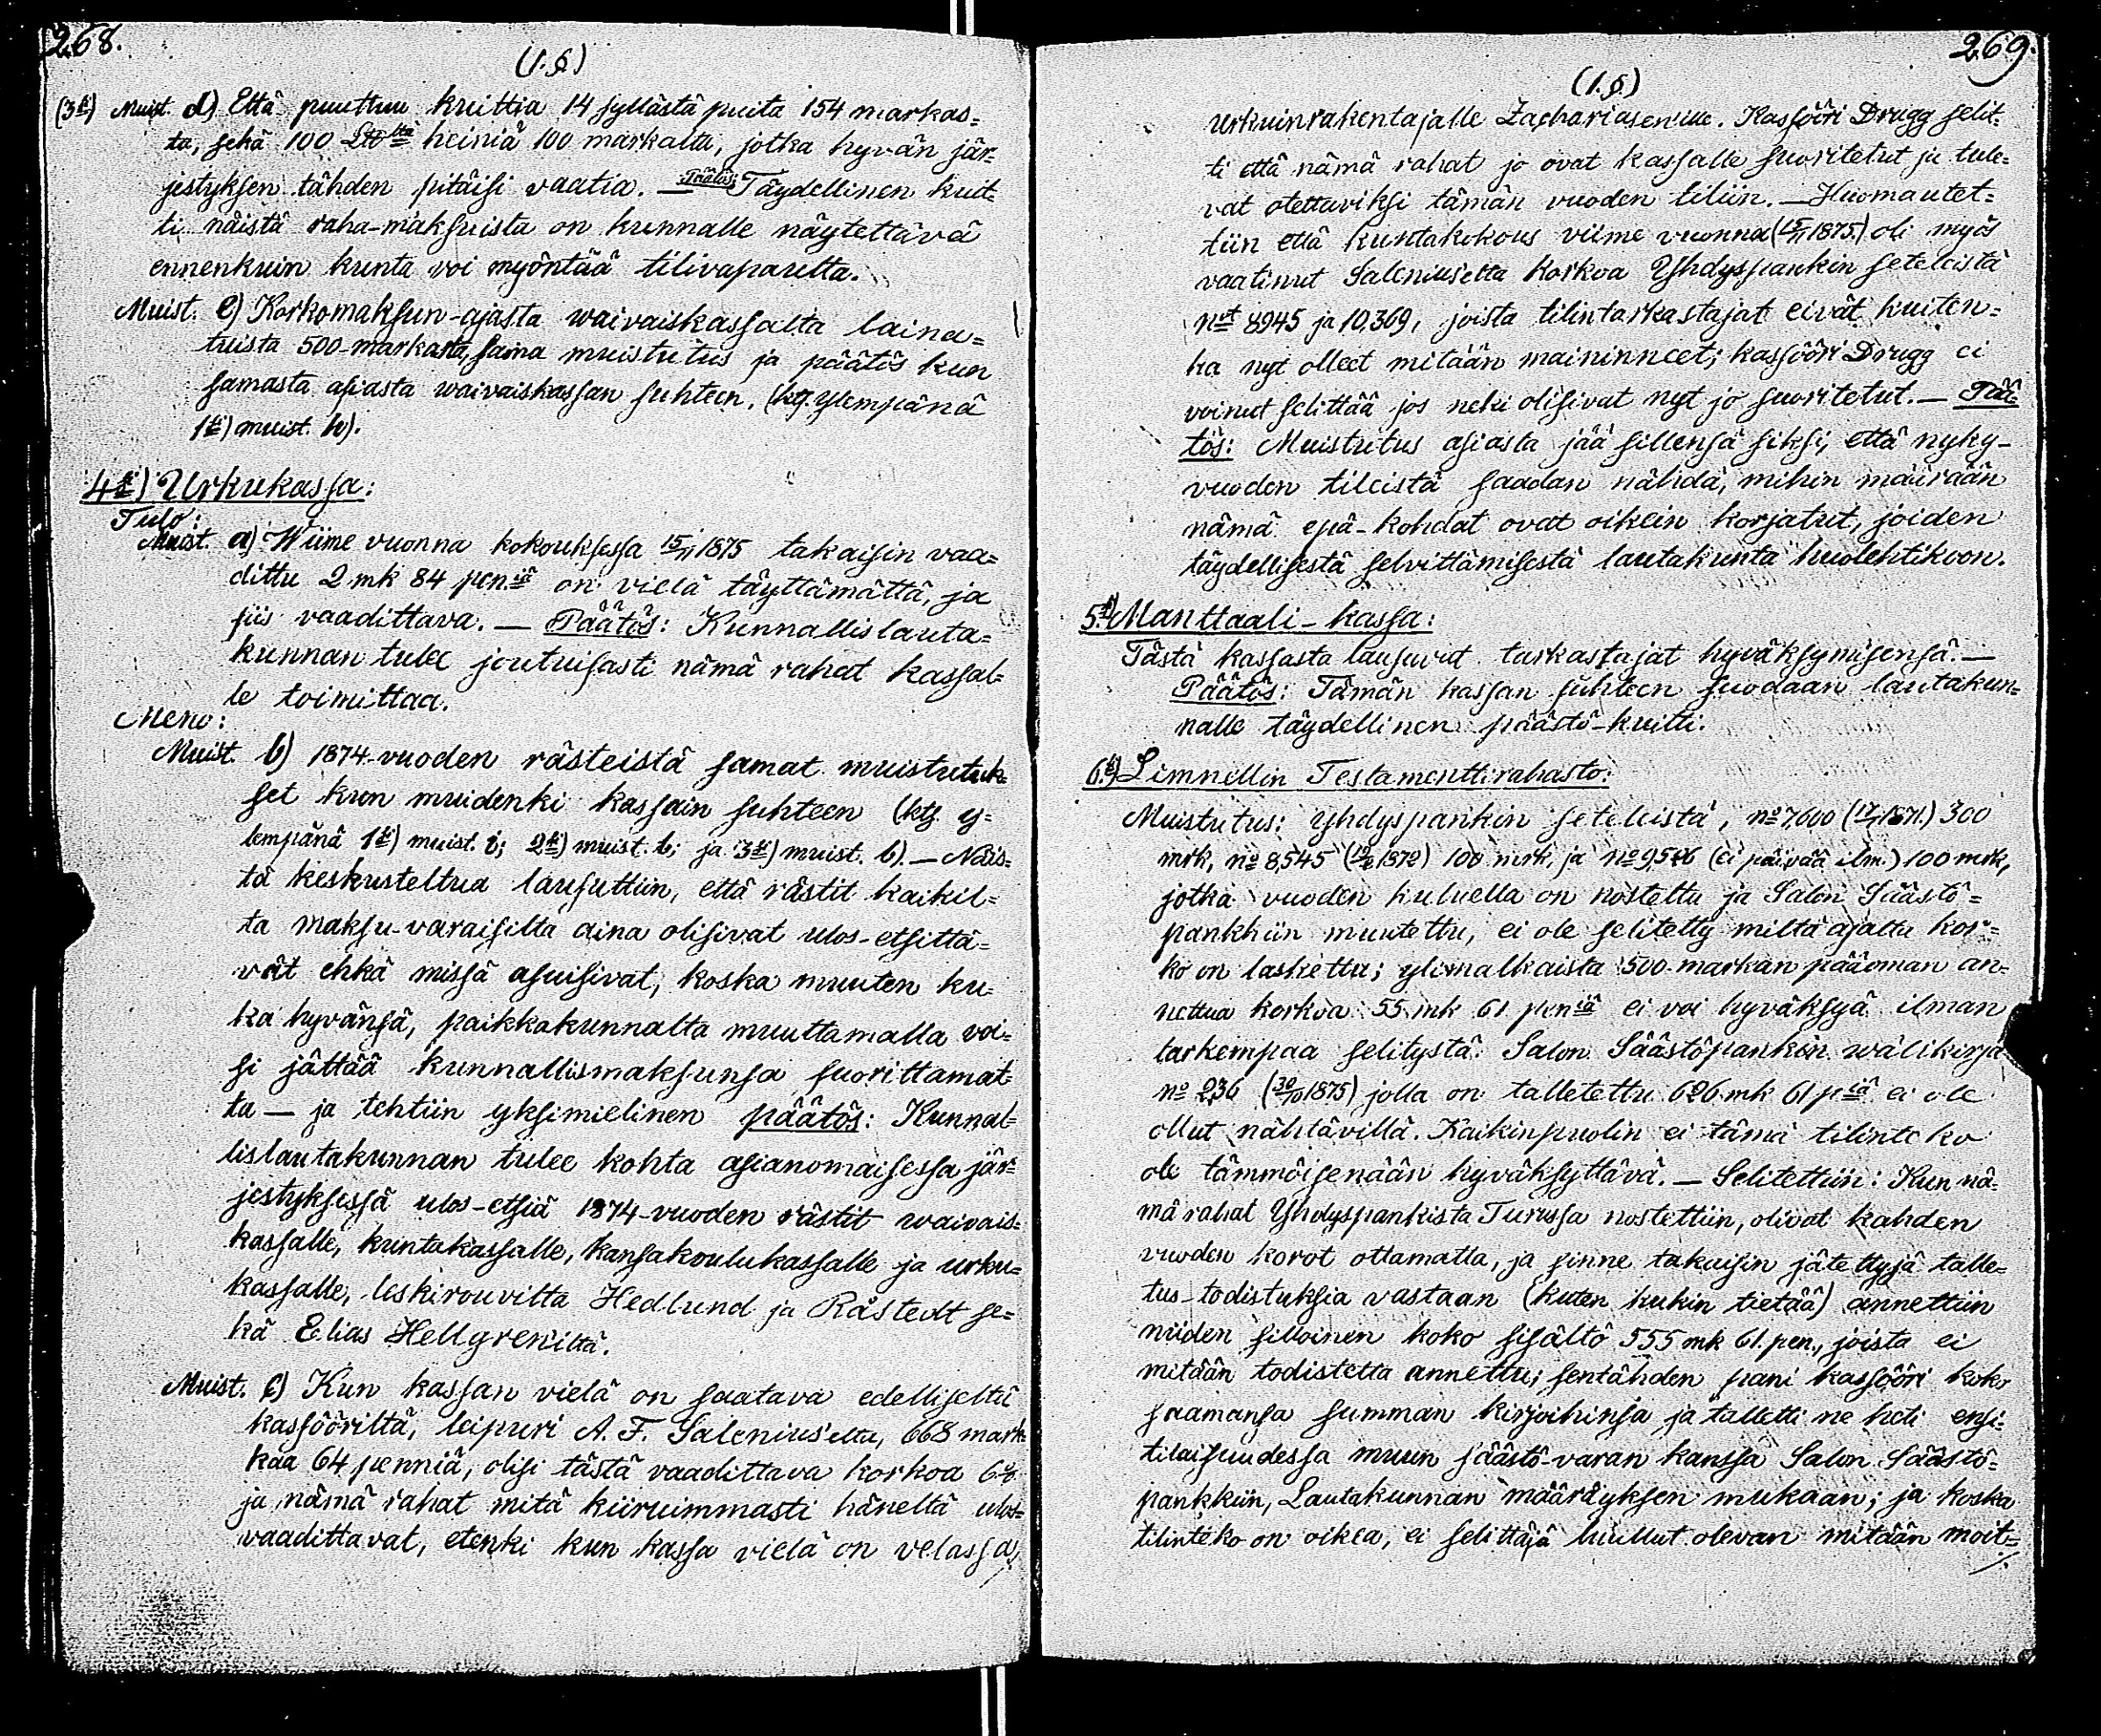 268.
(1.§)
(3:ksi) Muist. d) Että puuttuu kuittia 14 syllästä puita 154 markas=
ta, sekä 100 L℔:ltä heiniä 100 markalta, jotka hyvän jär=
jestyksen tähden pitäisi vaatia. — Päätös: Täydellinen kuit=
ti näistä raha-maksuista on kunnalle näytettävä
ennenkuin kunta voi myöntää tilivapautta.
Muist. e) Korkomaksun-ajasta waivaiskassalta laina=
tuista 500-markasta, sama muistutus ja päätös kun
samasta asiasta waivaiskassan suhteen. (ktz. ylempänä
1:ksi) muist. h).
4:ksi) Urkukassa:
Tulo:
Muist. a) Wiime vuonna kokouksessa 15/11 1875 takaisin vaa=
dittu 2 mk 84 pen:iä on vielä täyttämättä, ja
siis vaadittava. — Päätös: Kunnallislauta=
kunnan tulee joutuisasti nämä rahat kassal=
le toimittaa.
Meno:
Muist. b) 1874-vuoden rästeistä samat muistutuk=
set kun muidenki kassain suhteen (ktz. y=
lempänä 1:ksi) muist. i; 2:ksi) muist. b; ja 3:ksi) muist. b). — Näis=
tä keskusteltua lausuttiin, että rästit kaikil=
ta maksu-varaisilta aina olisivat ulos-etsittä=
vät ehkä missä asuisivat, koska muuten ku=
ka hyvänsä, paikkakunnalta muuttamalla voi=
si jättää kunnallismaksunsa suorittamat=
ta — ja tehtiin yksimielinen päätös: Kunnal=
lislautakunnan tulee kohta asianomaisessa jär=
jestyksessä ulos-etsiä 1874-vuoden rästit waivais=
kassalle, kuntakassalle, kansakoulukassalle ja urku=
kassalle, leskirouvilta Hedlund ja Råstedt se=
kä Elias Hellgren'iltä.
Muist. c) Kun kassan vielä on saatava edelliseltä
kassööriltä, leipuri A. F. Salenius'elta, 668 mark=
kaa 64 penniä, olisi tästä vaadittava korkoa 6%
ja nämä rahat mitä kiiruimmasti häneltä ulos=
vaadittavat, etenki kun kassa vielä on velassa
269.
(1.§)
urkuinrakentajalle Zachariasen'ille. Kassööri Drugg selit=
ti että nämä rahat jo ovat kassalle suoritetut ja tule=
vat otettaviksi tämän vuoden tiliin. — Huomautet=
tiin että kuntakokous viime vuonna (15/11 1875.) oli myös
vaatinut Salenius'elta korkoa Yhdyspankin seteleistä
n:ot 8945 ja 10,369, joista tilintarkastajat eivät kuiten=
ka nyt olleet mitään maininneet; kassööri Drugg ei
voinut selittää jos neki olisivat nyt jo suoritetut. — Pää=
tös: Muistutus asiasta jää sillensä siksi, että nyky-
vuoden tileistä saadan nähdä, mihin määrään
nämä epä-kohdat ovat oikein korjatut, joiden
täydellisestä selvittämisestä lautakunta huolehtikoon.
5:ksi) Manttaali-kassa:
Tästä kassasta lausuvat tarkastajat hyväksymisensä. —
Päätös: Tämän kassan suhteen suodaan lautakun=
nalle täydellinen päästö-kuitti.
6:ksi) Limnellin Testamenttirahasto:
Muistutus: Yhdyspankin seteleistä, n:o 7,600 (1871.) 300
mrk, n:o 8,545 (1872) 100 mrk, ja n:o 9,586 (ei päivää ilm.) 100 mrk,
jotka vuoden kuluella on nostettu ja Salon Säästö=
pankhiin muutettu, ei ole selitetty miltä ajalta kor=
ko on laskettu; ylimalkaista 500-markan pääoman an=
nettua korkoa 55 mk 61 pen:iä ei voi hyväksyä ilman
tarkempaa selitystä. Salon Säästöpankin wälikirja
n:o 236 (30/10 1875) jolla on talletettu 626 mk 61 p:iä ei ole
ollut nähtävillä. Kaikinpuolin ei tämä tilinteko
ole tämmöisenään hyväksyttävä. — Selitettiin: Kun nä=
mä rahat Yhdyspankista Turussa nostettiin, olivat kahden
vuoden korot ottamatta, ja sinne takaisin jätettyjä talle=
tus-todistuksia vastaan (kuten kukin tietää) annettiin
niiden silloinen koko sisältö 555 mk 61 pen., joista ei
mitään todistetta annettu; sentähden pani kassööri koko
saamansa summan kirjoihinsa ja talletti ne heti ensi=
tilaisuudessa muun säästö-varan kanssa Salon Säästö=
pankkiin, Lautakunnan määräyksen mukaan; ja koska
tilinteko on oikea, ei selittäjä luullut olevan mitään moit=